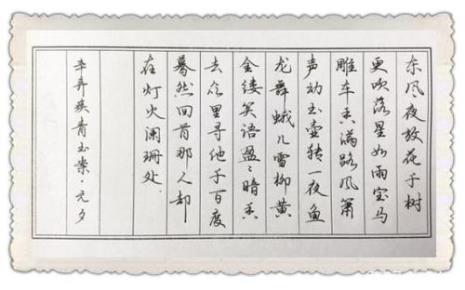 东风夜放花千树
更吹落星如雨宝马
雕车香满路凤箫
声动玉壶转一夜鱼
龙舞蛾儿雪柳黄
金缕笑语盈々暗香
去众里寻他千百度
蓦然回首那人却
在灯火阑珊处
辛弃疾青玉案·元夕